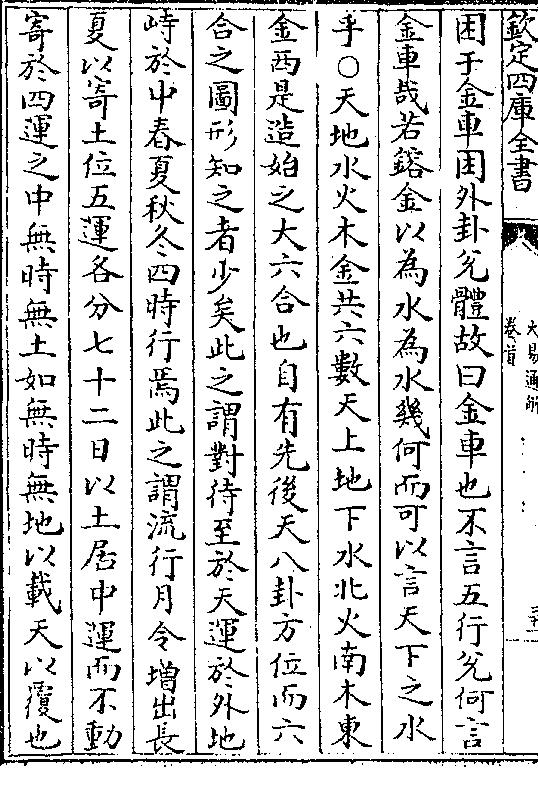 欽定四庫全書
大易通解
卷首
困于金車困外卦兊體故曰金車也不言五行兊何言
金車哉若鎔金以為水為水幾何而可以言天下之水
乎○天地水火木金共六數天上地下水北火南木東
金西是造始之大六合也自有先後天八卦方位而六
合之圖形知之者少矣此之謂對待至於天運於外地
峙於中春夏秋冬四時行焉此之謂流行月令增出長
夏以寄土位五運各分七十二日以土居中運而不動
寄於四運之中無時無土如無時無地以載天以覆也